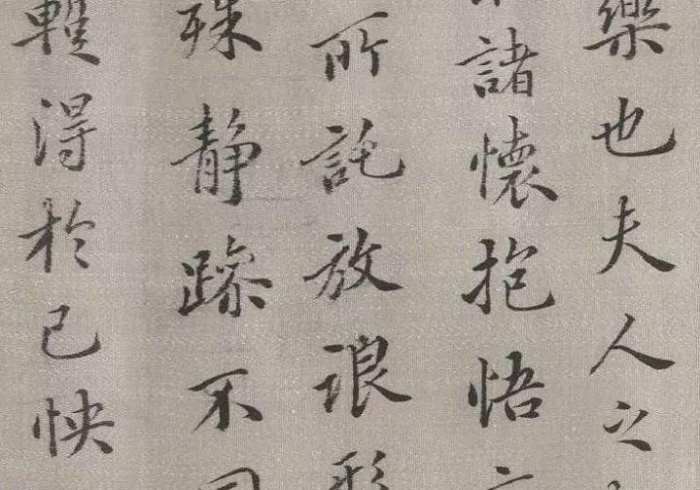 樂也夫人之
諸懷抱悟
所託放浪形
殊静躁不
得於己怏